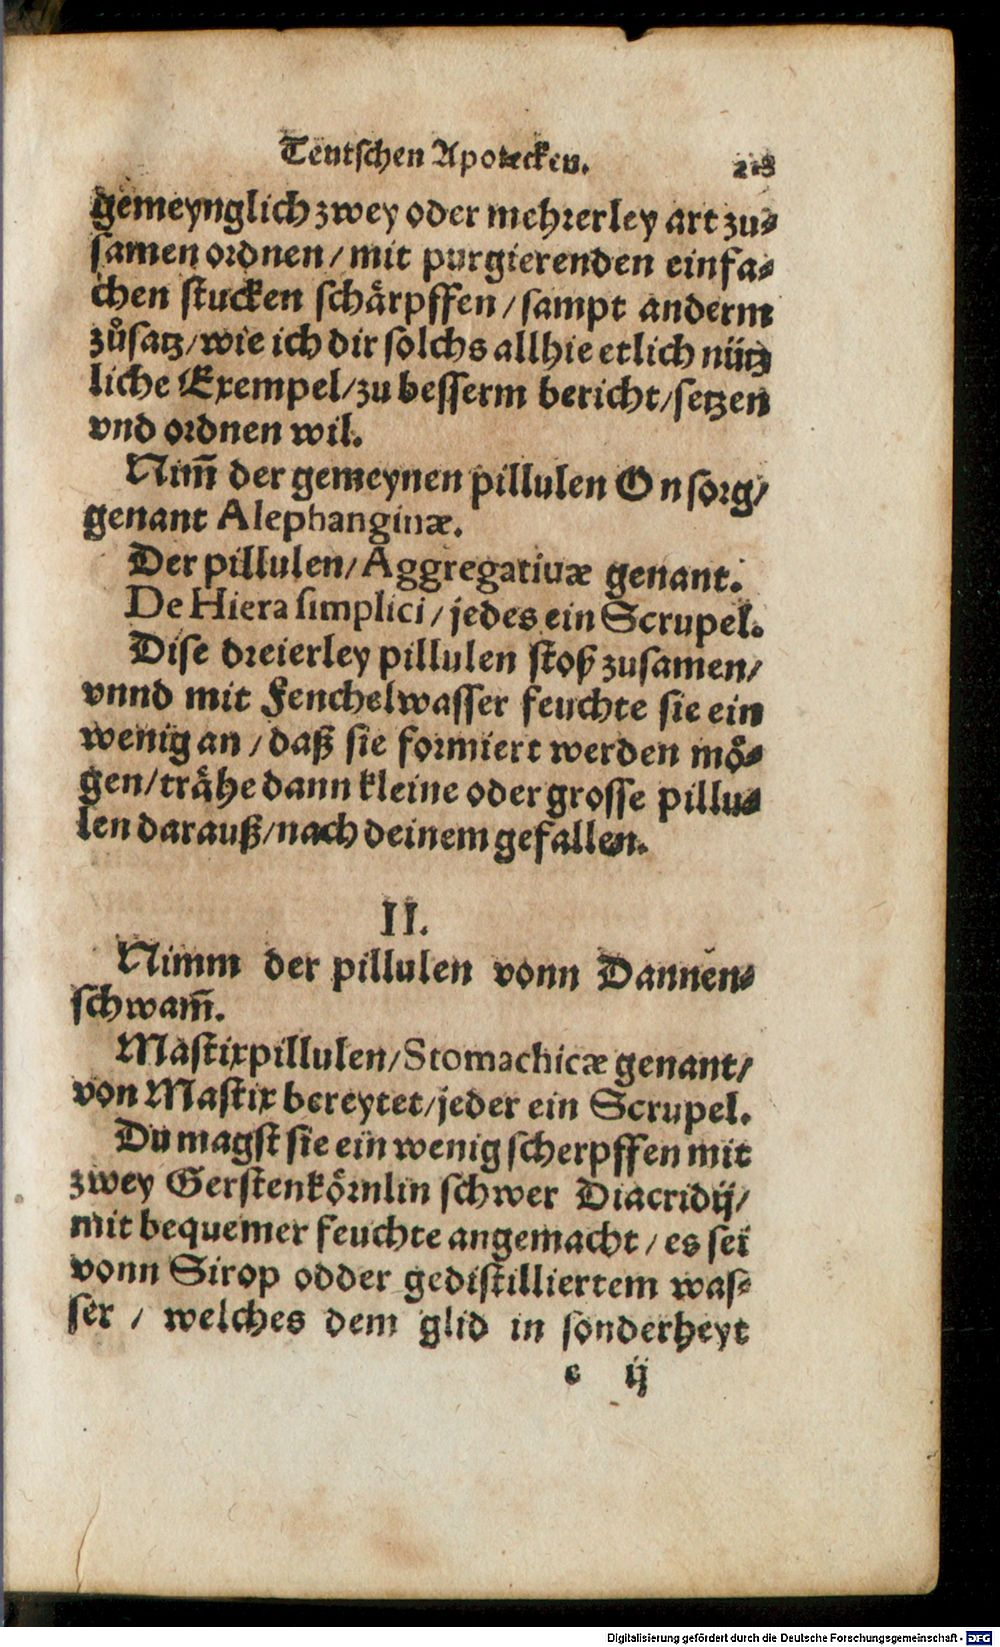 Teutschen Apotecken. 218
gemeynglich zwey oder mehrerley art zu⸗
samen ordnen / mit purgierenden einfa⸗
chen stucken schaͤrpffen / sampt anderm
zuͦsatz / wie ich dir solchs allhie etlich nuͤtz
liche Exempel / zu besserm bericht / setzen
vnd ordnen wil.
Nim̃ der gemeynen pillulen On sorg /
genant Alephanginæ.
Der pillulen / Aggregatiuæ genant.
De Hiera simplici / jedes ein Scrupel.
Dise dreierley pillulen stoß zusamen /
vnnd mit Fenchelwasser feuchte sie ein
wenig an / daß sie formiert werden moͤ⸗
gen / traͤhe dann kleine oder grosse pillu⸗
len darauß / nach deinem gefallen.
II.
Nimm der pillulen vonn Dannen⸗
schwam̃.
Mastixpillulen / Stomachicæ genant /
von Mastix bereytet / jeder ein Scrupel.
Du magst sie ein wenig scherpffen mit
zwey Gerstenkoͤrnlin schwer Diacridij /
mit bequemer feuchte angemacht / es sei
vonn Sirop odder gedistilliertem was⸗
ser / welches dem glid in sonderheyt
e ij
Digitalisierung gefördert durch die Deutsche Forschungsgemeinschaft - DFG